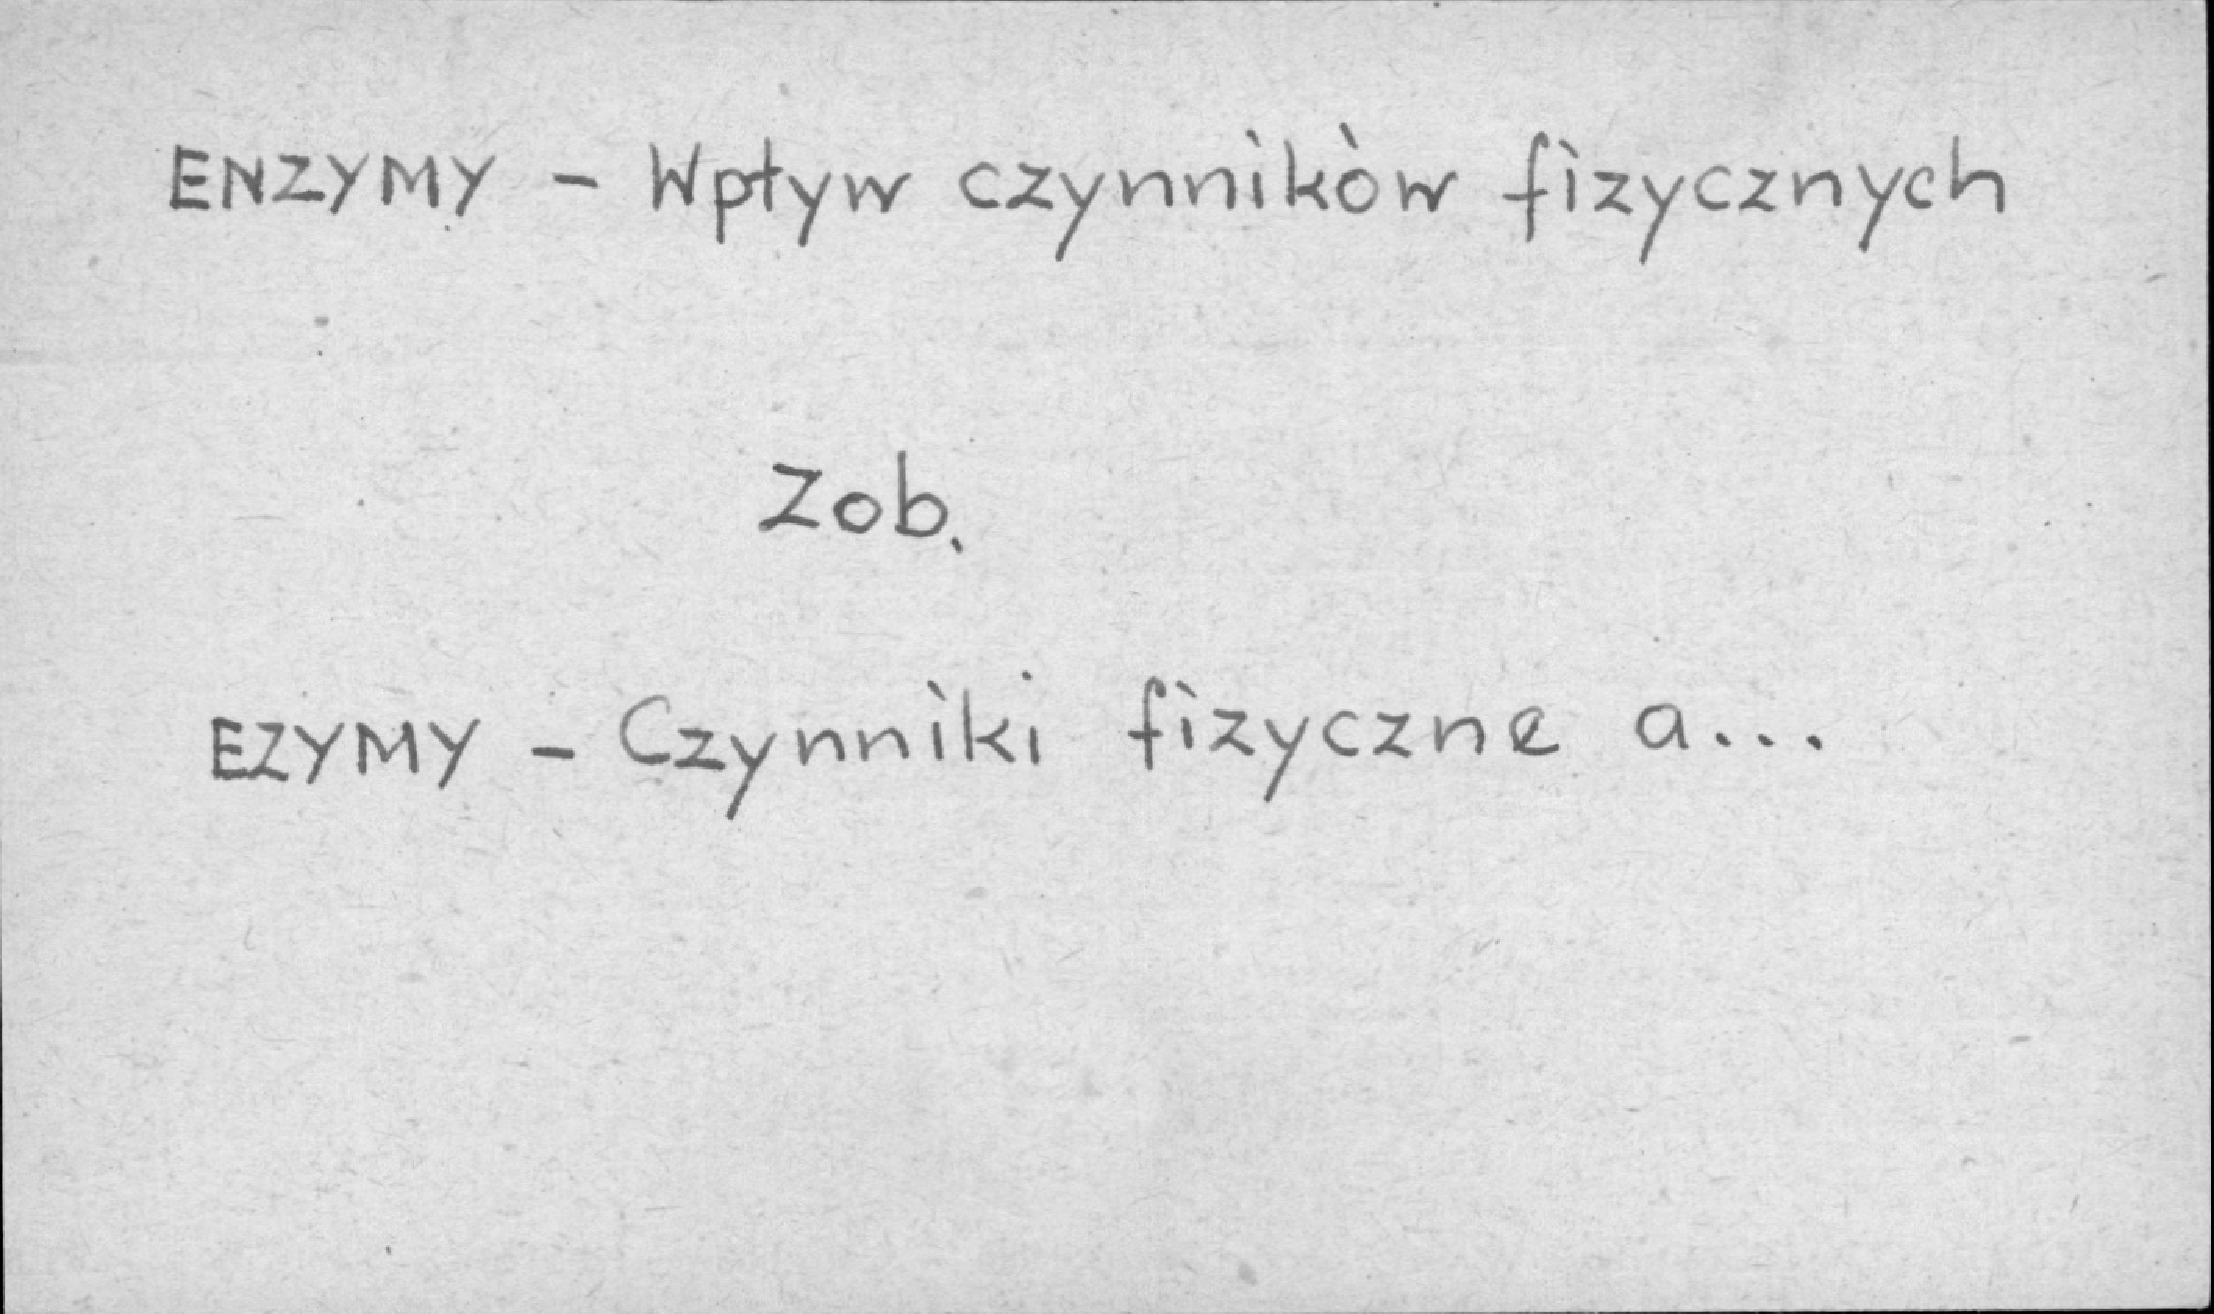 ENZYMY - Wpływ czynników fizycznych
Zob.
EZYMY - Czynniki fizyczne a...